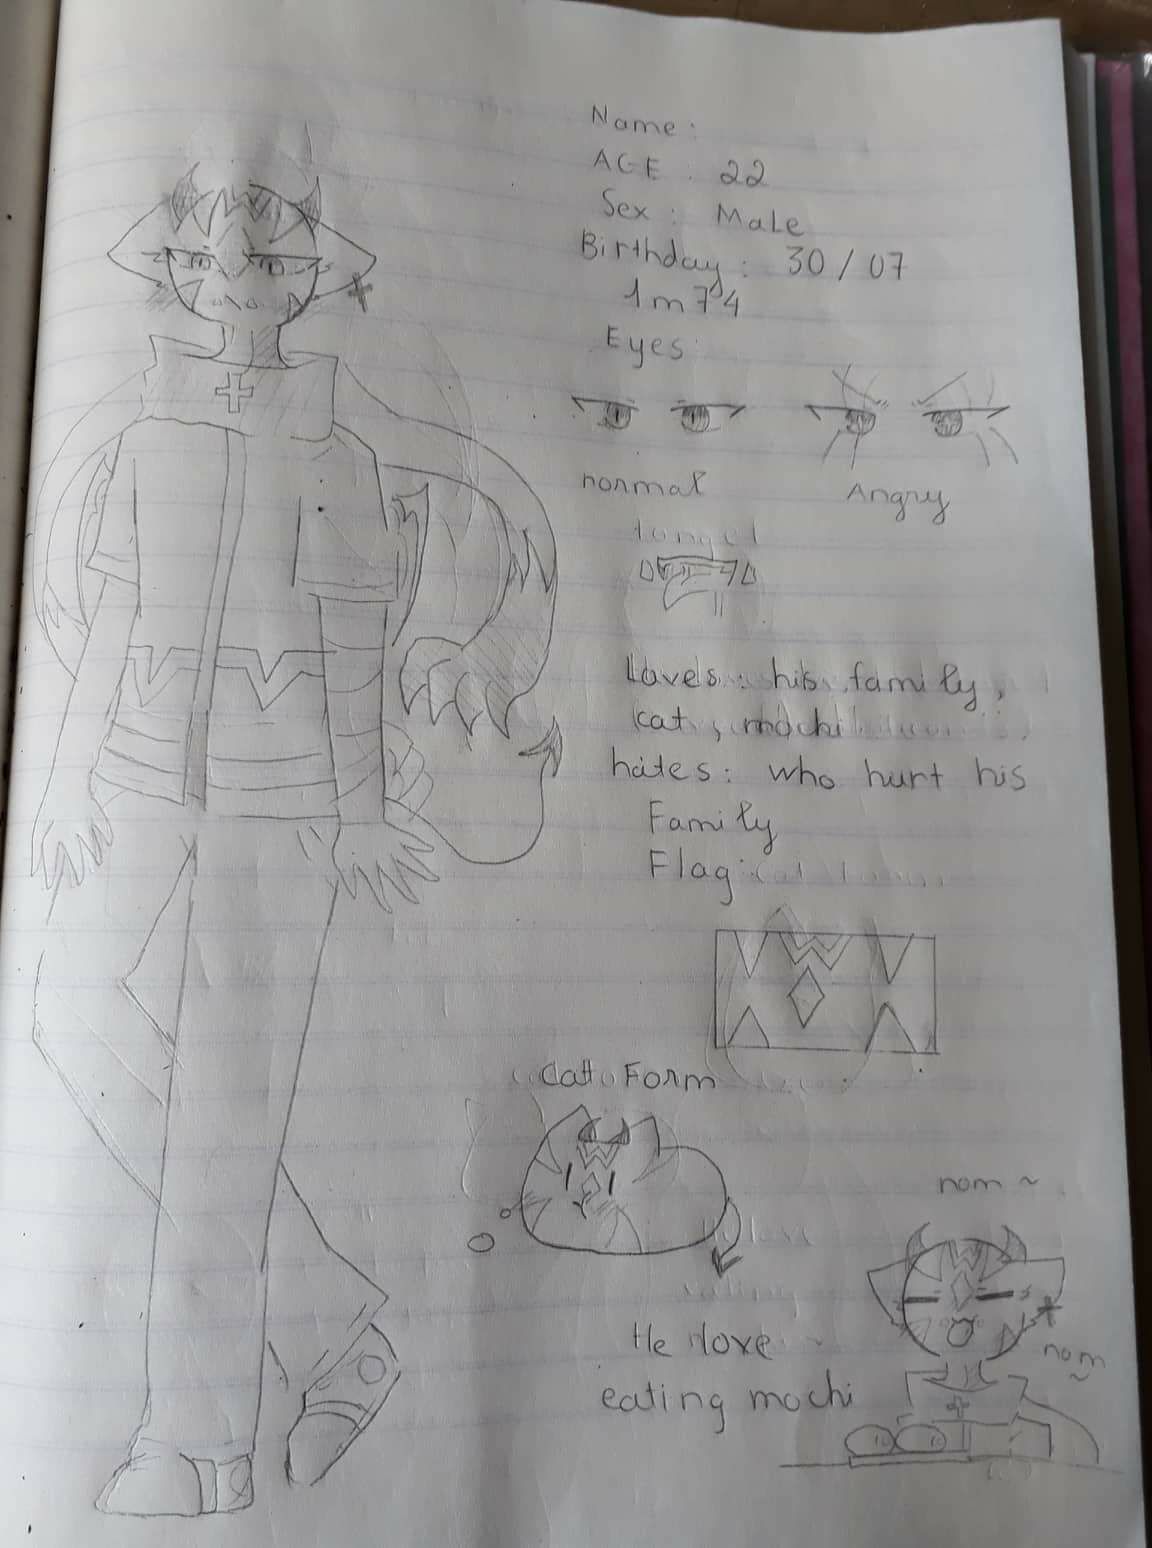 Name:
AGE : 22
Sex : Male
Birthday : 30 / 07
1m74
Eyes
normal
Angry
Loves : his family,
cat, mochi
hates : who hurt his
Family
Flag :
Cat Form
nom ~
He love
eating mochi
nom ~